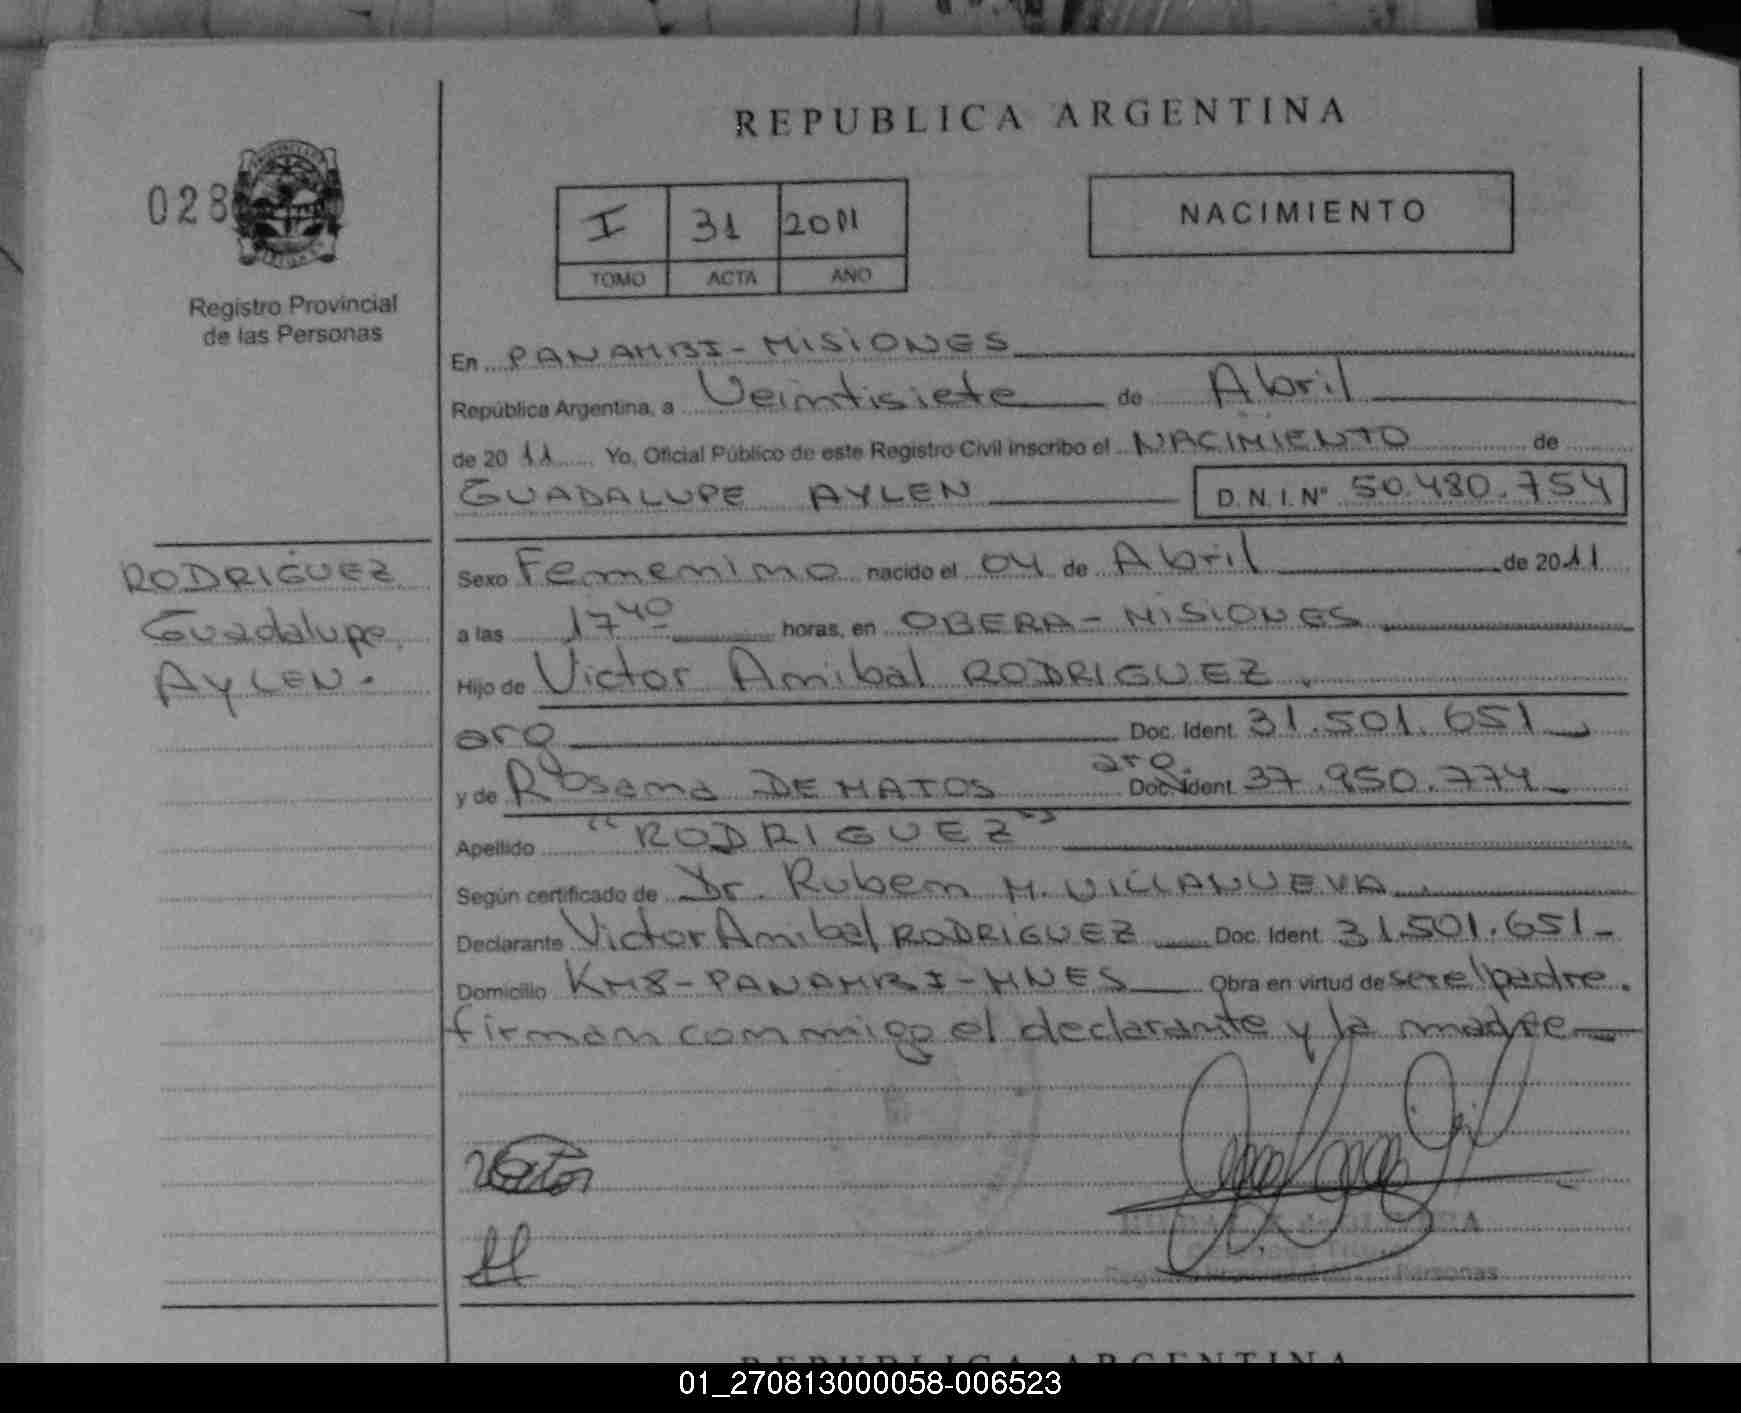 REPUBLICA ARGENTINA
028
I 31 2011
TOMO ACTA AÑO
NACIMIENTO
Registro Provincial
de las Personas
En PANAMBI - MISIONES
República Argentina, a Veintisiete de Abril
de 2011 Yo, Oficial Público de este Registro Civil inscribo el NACIMIENTO de
GUADALUPE AYLEN D.N.I. Nº 50.480.754
RODRIGUEZ
Guadalupe
AYLEN.
Sexo Femenino nacido el 04 de Abril de 2011
a las 17 40 horas, en OBERA - MISIONES
Hijo de Victor Anibal RODRIGUEZ.
arg Doc. Ident. 31.501.651
y de Rosana DE MATOS arg. Doc. Ident. 37.950.774
Apellido "RODRIGUEZ"
Según certificado de Dr. Ruben H. VILLANUEVA
Declarante Victor Anibal RODRIGUEZ Doc. Ident. 31.501.651-
Domicilio KM8 - PANAMBI - MNES Obra en virtud de ser el padre.
firman conmigo el declarante y la madre
Personas
REPUBLICA ARGENTINA
01_270813000058-006523